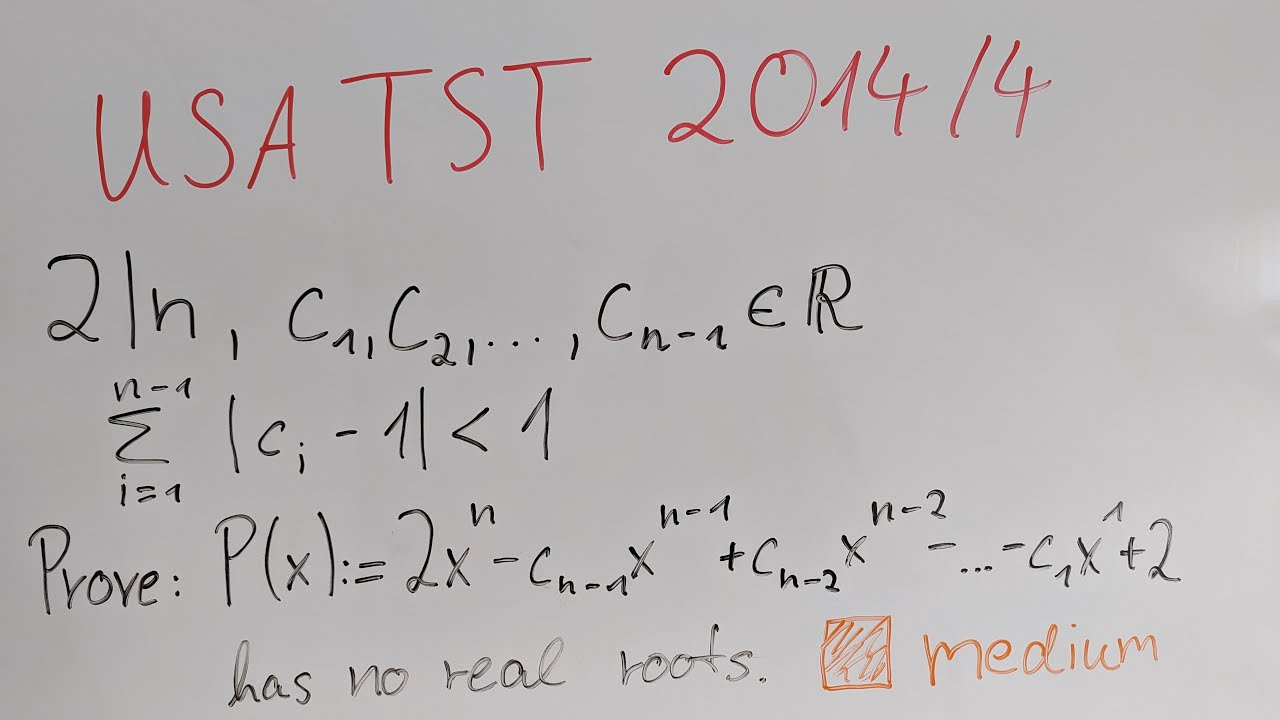 USA TST 2014/4
2|n, c₁, c₂, ..., cₙ₋₁ ∈ ℝ
∑_{i=1}^{n-1} |cᵢ - 1| < 1
Prove: P(x) := 2xⁿ - cₙ₋₁xⁿ⁻¹ + cₙ₋₂xⁿ⁻² - ... - c₁x¹ + 2
has no real roots. medium